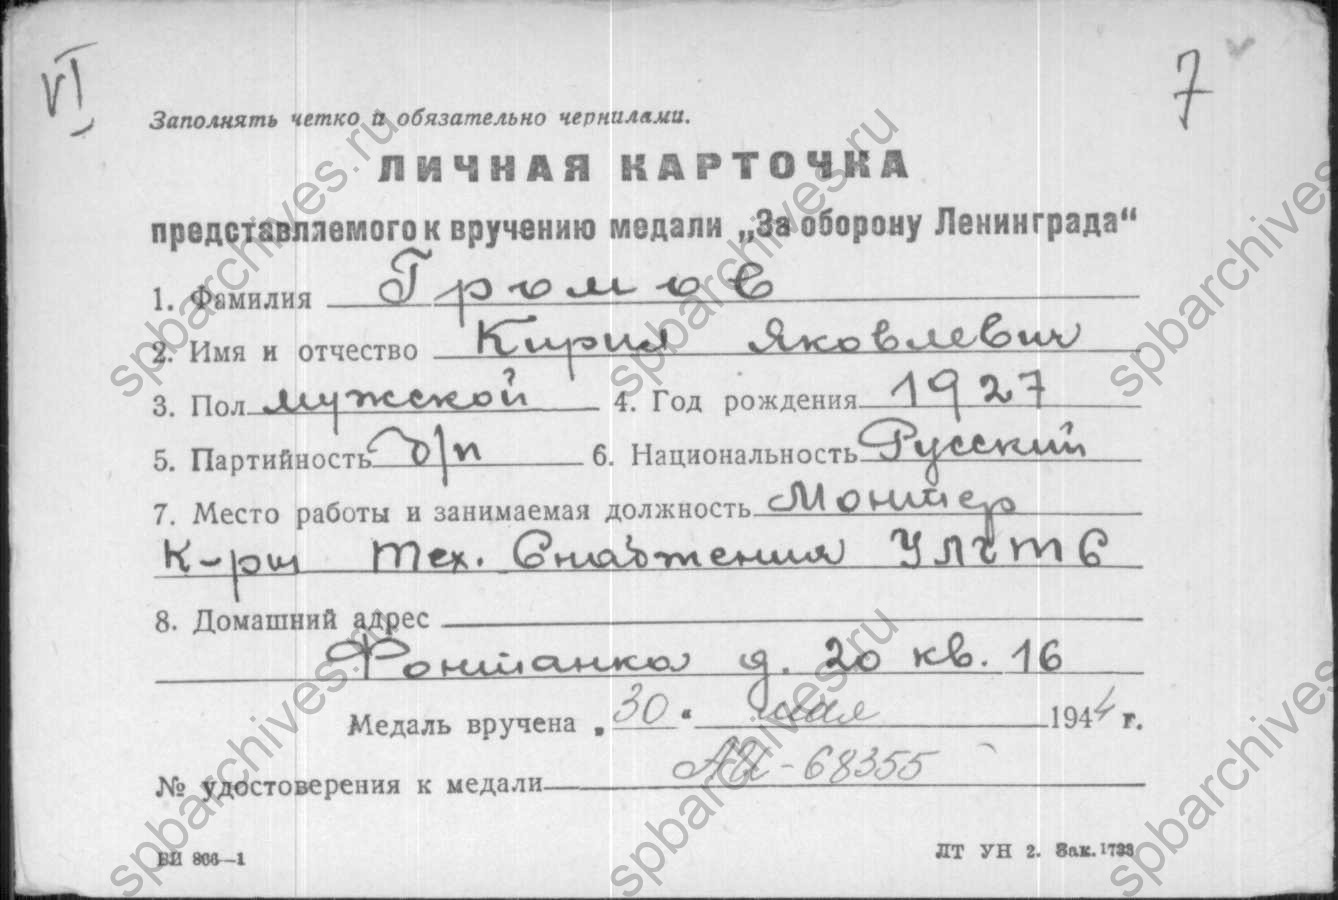 VI
7
Заполнять четко и обязательно чернилами.
ЛИЧНАЯ КАРТОЧКА
представляемого к вручению медали „За оборону Ленинграда“
1. Фамилия Громов
2. Имя и отчество Кирил Яковлевич
3. Пол мужской 4. Год рождения 1927
5. Партийность б/п 6. Национальность Русский
7. Место работы и занимаемая должность Монтер
К-ры Тех. Снабжения
8. Домашний адрес
Фонтанка д. 20 кв. 16
Медаль вручена „30“ мая 1944 г.
№ удостоверения к медали АИ-68355
ВИ 866—1
ЛТ УН 2. Зак. 1733
spbarchives.ru
spbarchives.ru
spbarchives.ru
spbarchives.ru
spbarchives.ru
spbarchives.ru